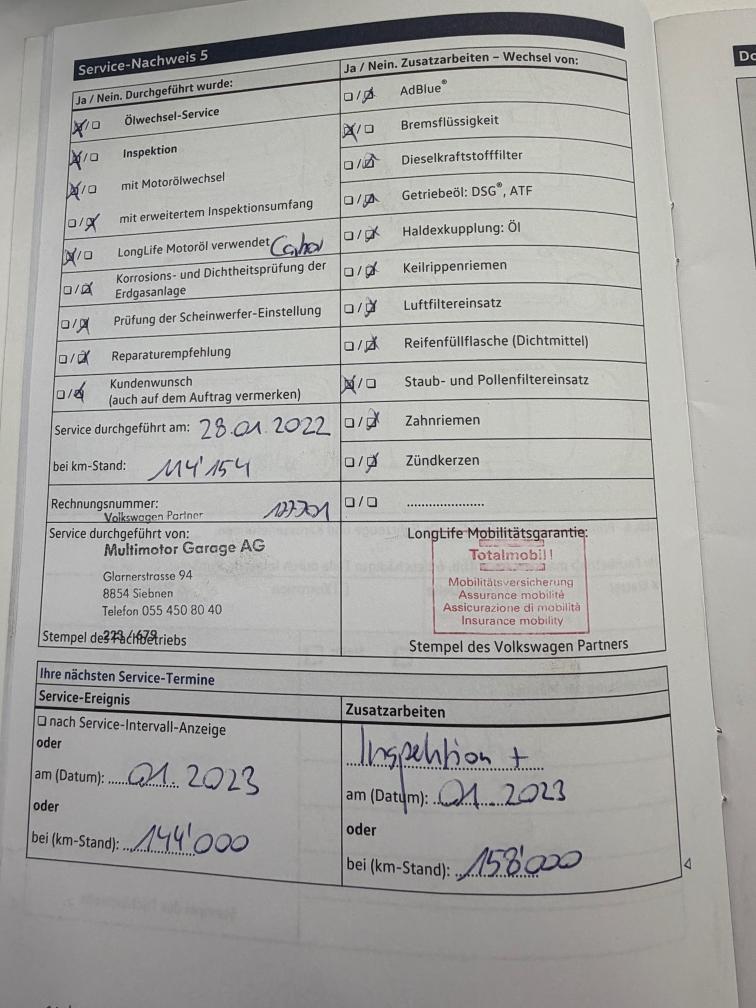 Service-Nachweis 5
Ja / Nein. Durchgeführt wurde:
Ölwechsel-Service
Inspektion
mit Motorölwechsel
mit erweitertem Inspektionsumfang
LongLife Motoröl verwendet
Korrosions- und Dichtheitsprüfung der
Erdgasanlage
Prüfung der Scheinwerfer-Einstellung
Reparaturempfehlung
Kundenwunsch
(auch auf dem Auftrag vermerken)
Service durchgeführt am: 28.01.2022
bei km-Stand: 114'154
Rechnungsnummer:
Volkswagen Partner
Service durchgeführt von:
Multimotor Garage AG
Glarnerstrasse 94
8854 Siebnen
Telefon 055 450 80 40
Stempel des Fachbetriebs
Ja / Nein. Zusatzarbeiten – Wechsel von:
AdBlue®
Bremsflüssigkeit
Dieselkraftstofffilter
Getriebeöl: DSG®, ATF
Haldexkupplung: Öl
Keilrippenriemen
Luftfiltereinsatz
Reifenfüllflasche (Dichtmittel)
Staub- und Pollenfiltereinsatz
Zahnriemen
Zündkerzen
.....................
LongLife Mobilitätsgarantie:
Totalmobil!
Mobilitätsversicherung
Assurance mobilité
Assicurazione di mobilità
Insurance mobility
Stempel des Volkswagen Partners
Ihre nächsten Service-Termine
Service-Ereignis
nach Service-Intervall-Anzeige
oder
am (Datum): 01.2023
oder
bei (km-Stand): 144'000
Zusatzarbeiten
Inspektion +
am (Datum): 01.2023
oder
bei (km-Stand): 158'000
Do